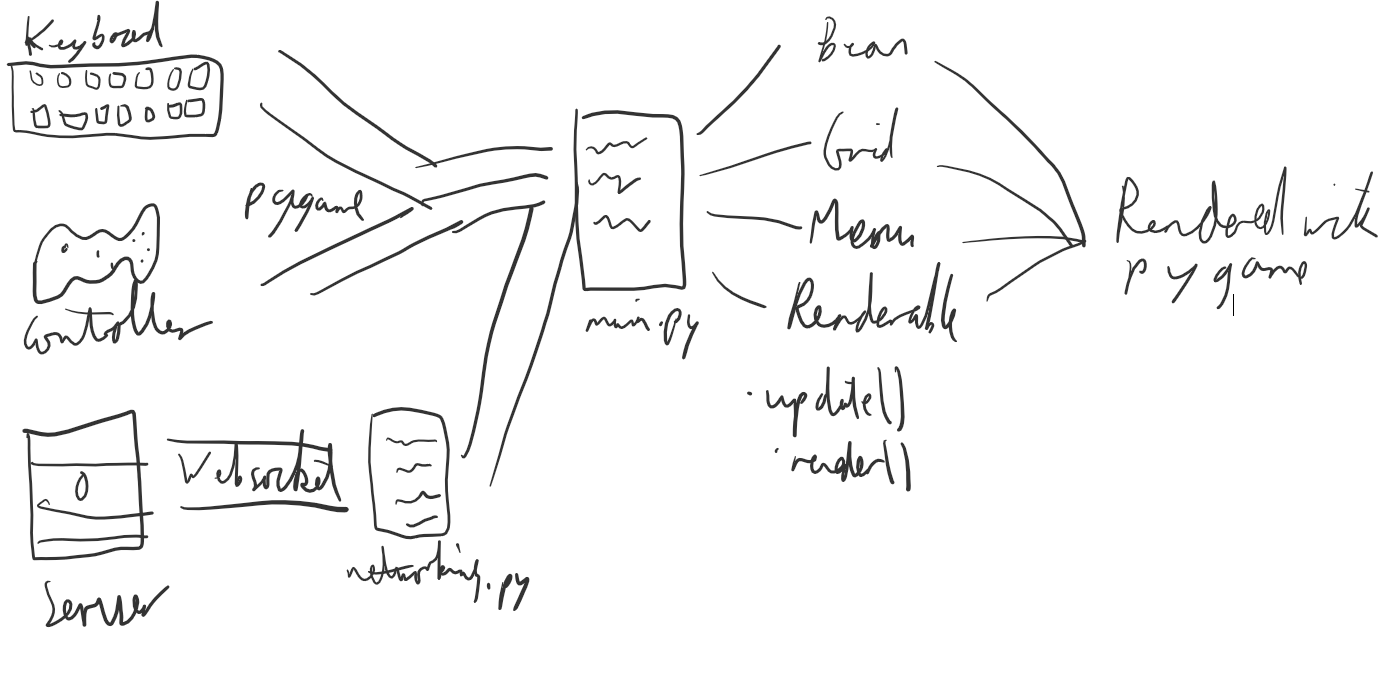 Keyboard
pygame
Controller
Server
Websocket
networking.py
main.py
Bean
Grid
Menu
Renderable
.update()
.render()
Rendered with
pygame